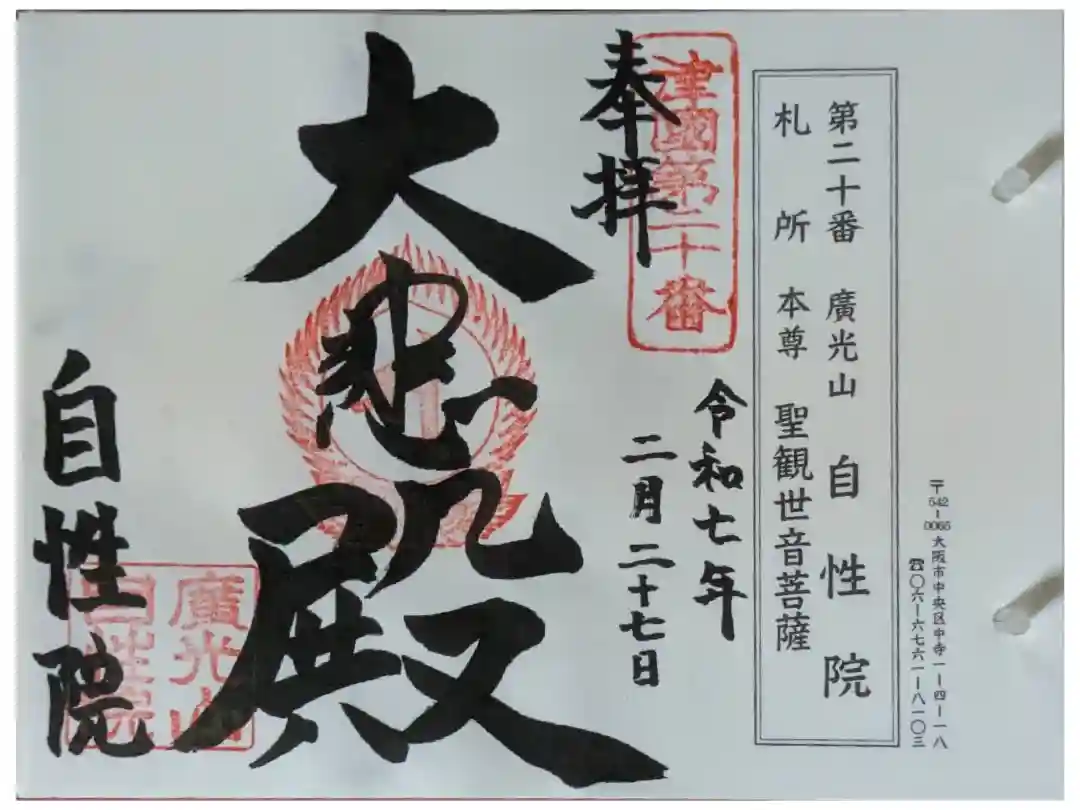 〒542-0065 大阪市中央区中寺一-四-一八
☎〇六-六七六一-八一〇三
第二十番 廣光山 自性院
札所 本尊 聖観世音菩薩
津國第二十番
奉拝
令和七年
二月二十七日
大悲殿
自性院
廣光山
自性院